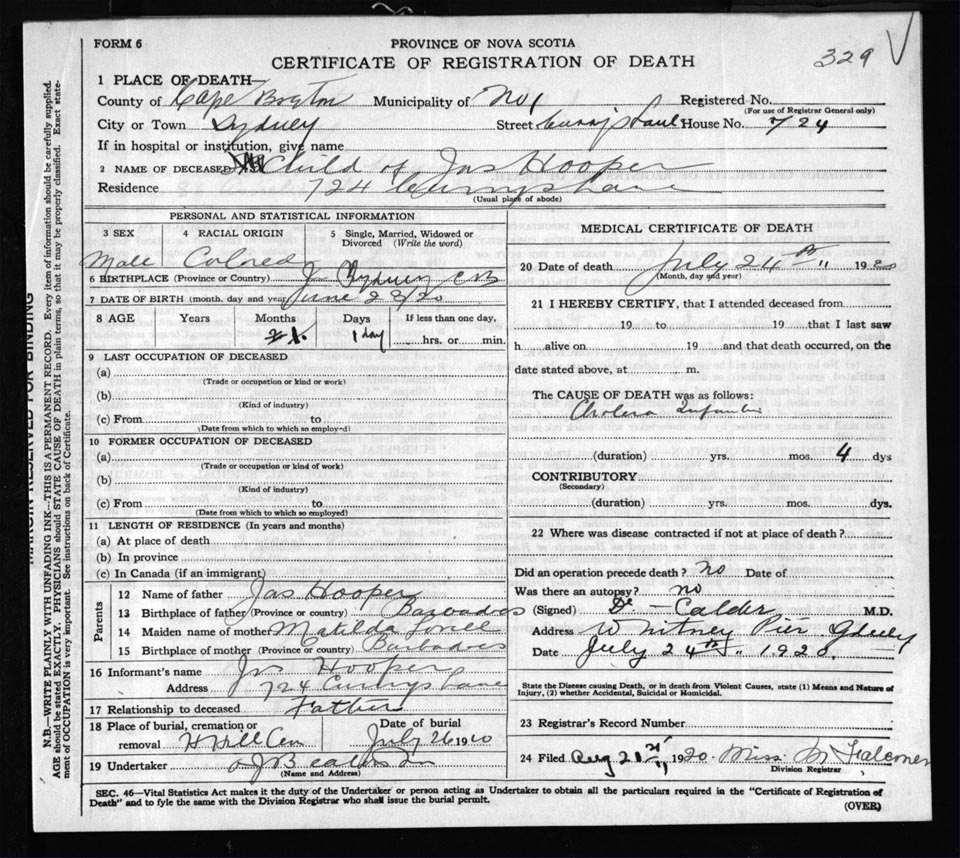 FORM 6
PROVINCE OF NOVA SCOTIA
CERTIFICATE OF REGISTRATION OF DEATH
329
1 PLACE OF DEATH
County of Cape Breton Municipality of No 1 Registered No.
(For use of Registrar General only)
City or Town Sydney Street House No. 724
If in hospital or institution, give name
2 NAME OF DECEASED Child of Jas Hooper
Residence 724 Currys Lane
(Usual place of abode)
PERSONAL AND STATISTICAL INFORMATION
3 SEX 4 RACIAL ORIGIN 5 Single, Married, Widowed or Divorced (Write the word)
Male Colored
6 BIRTHPLACE (Province or Country) Sydney C B
7 DATE OF BIRTH (month, day and year) June 23/20
8 AGE Years Months Days If less than one day,
1 day hrs. or min.
9 LAST OCCUPATION OF DECEASED
(a)
(Trade or occupation or kind or work)
(b)
(Kind of industry)
(c) From to
(Date from which to which so employed)
10 FORMER OCCUPATION OF DECEASED
(a)
(Trade or occupation or kind of work)
(b)
(Kind of industry)
(c) From to
(Date from which to which so employed)
11 LENGTH OF RESIDENCE (In years and months)
(a) At place of death
(b) In province
(c) In Canada (if an immigrant)
Parents
12 Name of father Jas Hooper
13 Birthplace of father (Province or country) Barbados
14 Maiden name of mother Matilda
15 Birthplace of mother (Province or country) Barbados
16 Informant's name Jas Hooper
Address 724 Currys Lane
17 Relationship to deceased Father
18 Place of burial, cremation or removal Date of burial
July 26 19
19 Undertaker
(Name and Address)
MEDICAL CERTIFICATE OF DEATH
20 Date of death July 24th " 1920
(Month, day and year)
21 I HEREBY CERTIFY, that I attended deceased from
19 to 19 that I last saw
h alive on 19 and that death occurred, on the
date stated above, at m.
The CAUSE OF DEATH was as follows:
Cholera Infantum
(duration) yrs. mos. 4 dys
CONTRIBUTORY
(Secondary)
(duration) yrs. mos. dys.
22 Where was disease contracted if not at place of death?
Did an operation precede death? No Date of
Was there an autopsy? no
(Signed) Dr - Calder M.D.
Address Whitney Pier Sydney
Date July 24th " 1920.
State the Disease causing Death, or in death from Violent Causes, state (1) Means and Nature of
Injury, (2) whether Accidental, Suicidal or Homicidal.
23 Registrar's Record Number
24 Filed Aug 21st " 1920. Miss M Falconer
Division Registrar
SEC. 46—Vital Statistics Act makes it the duty of the Undertaker or person acting as Undertaker to obtain all the particulars required in the "Certificate of Registration of
Death" and to fyle the same with the Division Registrar who shall issue the burial permit.
(OVER)
MARGIN RESERVED FOR BINDING
N.B.—WRITE PLAINLY WITH UNFADING INK—THIS IS A PERMANENT RECORD. Every item of information should be carefully supplied.
AGE should be stated EXACTLY. PHYSICIANS should STATE CAUSE OF DEATH in plain terms, so that it may be properly classified. Exact state-
ment of OCCUPATION is very important. See instructions on back of Certificate.